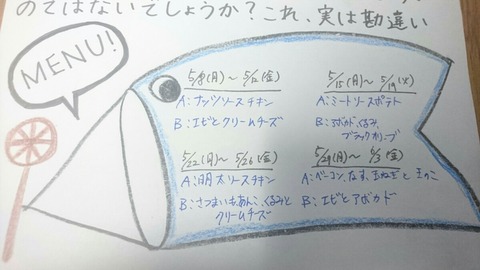 のではないでしょうか？これ、実は勘違い
MENU!
5/8(月)～ (金)
A:ナッツソースチキン
B:エビとクリームチーズ
5/15(月)～5/19
A:ミートソースポテト
B: くるみ、
ブラックオリーブ
5/22(月)～5/26(金)
A:明太ソースチキン
B:さつまいもあんこ、くるみと
クリームチーズ
5/29(月)～6/3(金)
A:ベーコン、なす、玉ねぎときのこ
B:エビとアボカド